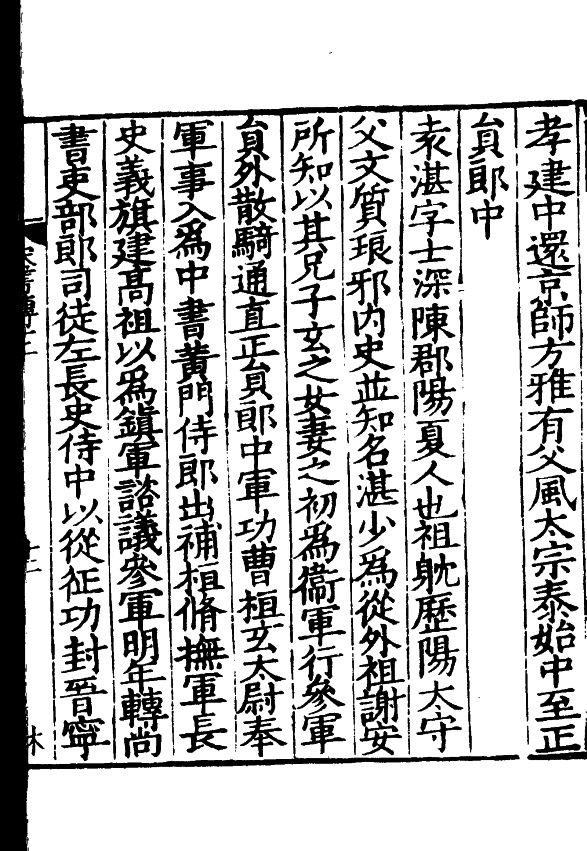 孝建中還京師方雅有父風太宗泰始中至正
貟郎中
袁湛字士深陳郡陽夏人也祖躭歷陽太守
父文質琅邪内史並知名湛少爲從外祖謝安
所知以其兄子玄之女妻之初爲衞軍行參軍
貟外散騎通直正貟郎中軍功曹桓玄太尉奉
軍事入爲中書黄門侍郎出補桓脩撫軍長
史義旗建髙祖以爲鎮軍諮議參軍明年轉尚
書吏部郎司徒左長史侍中以從征功封晉寧